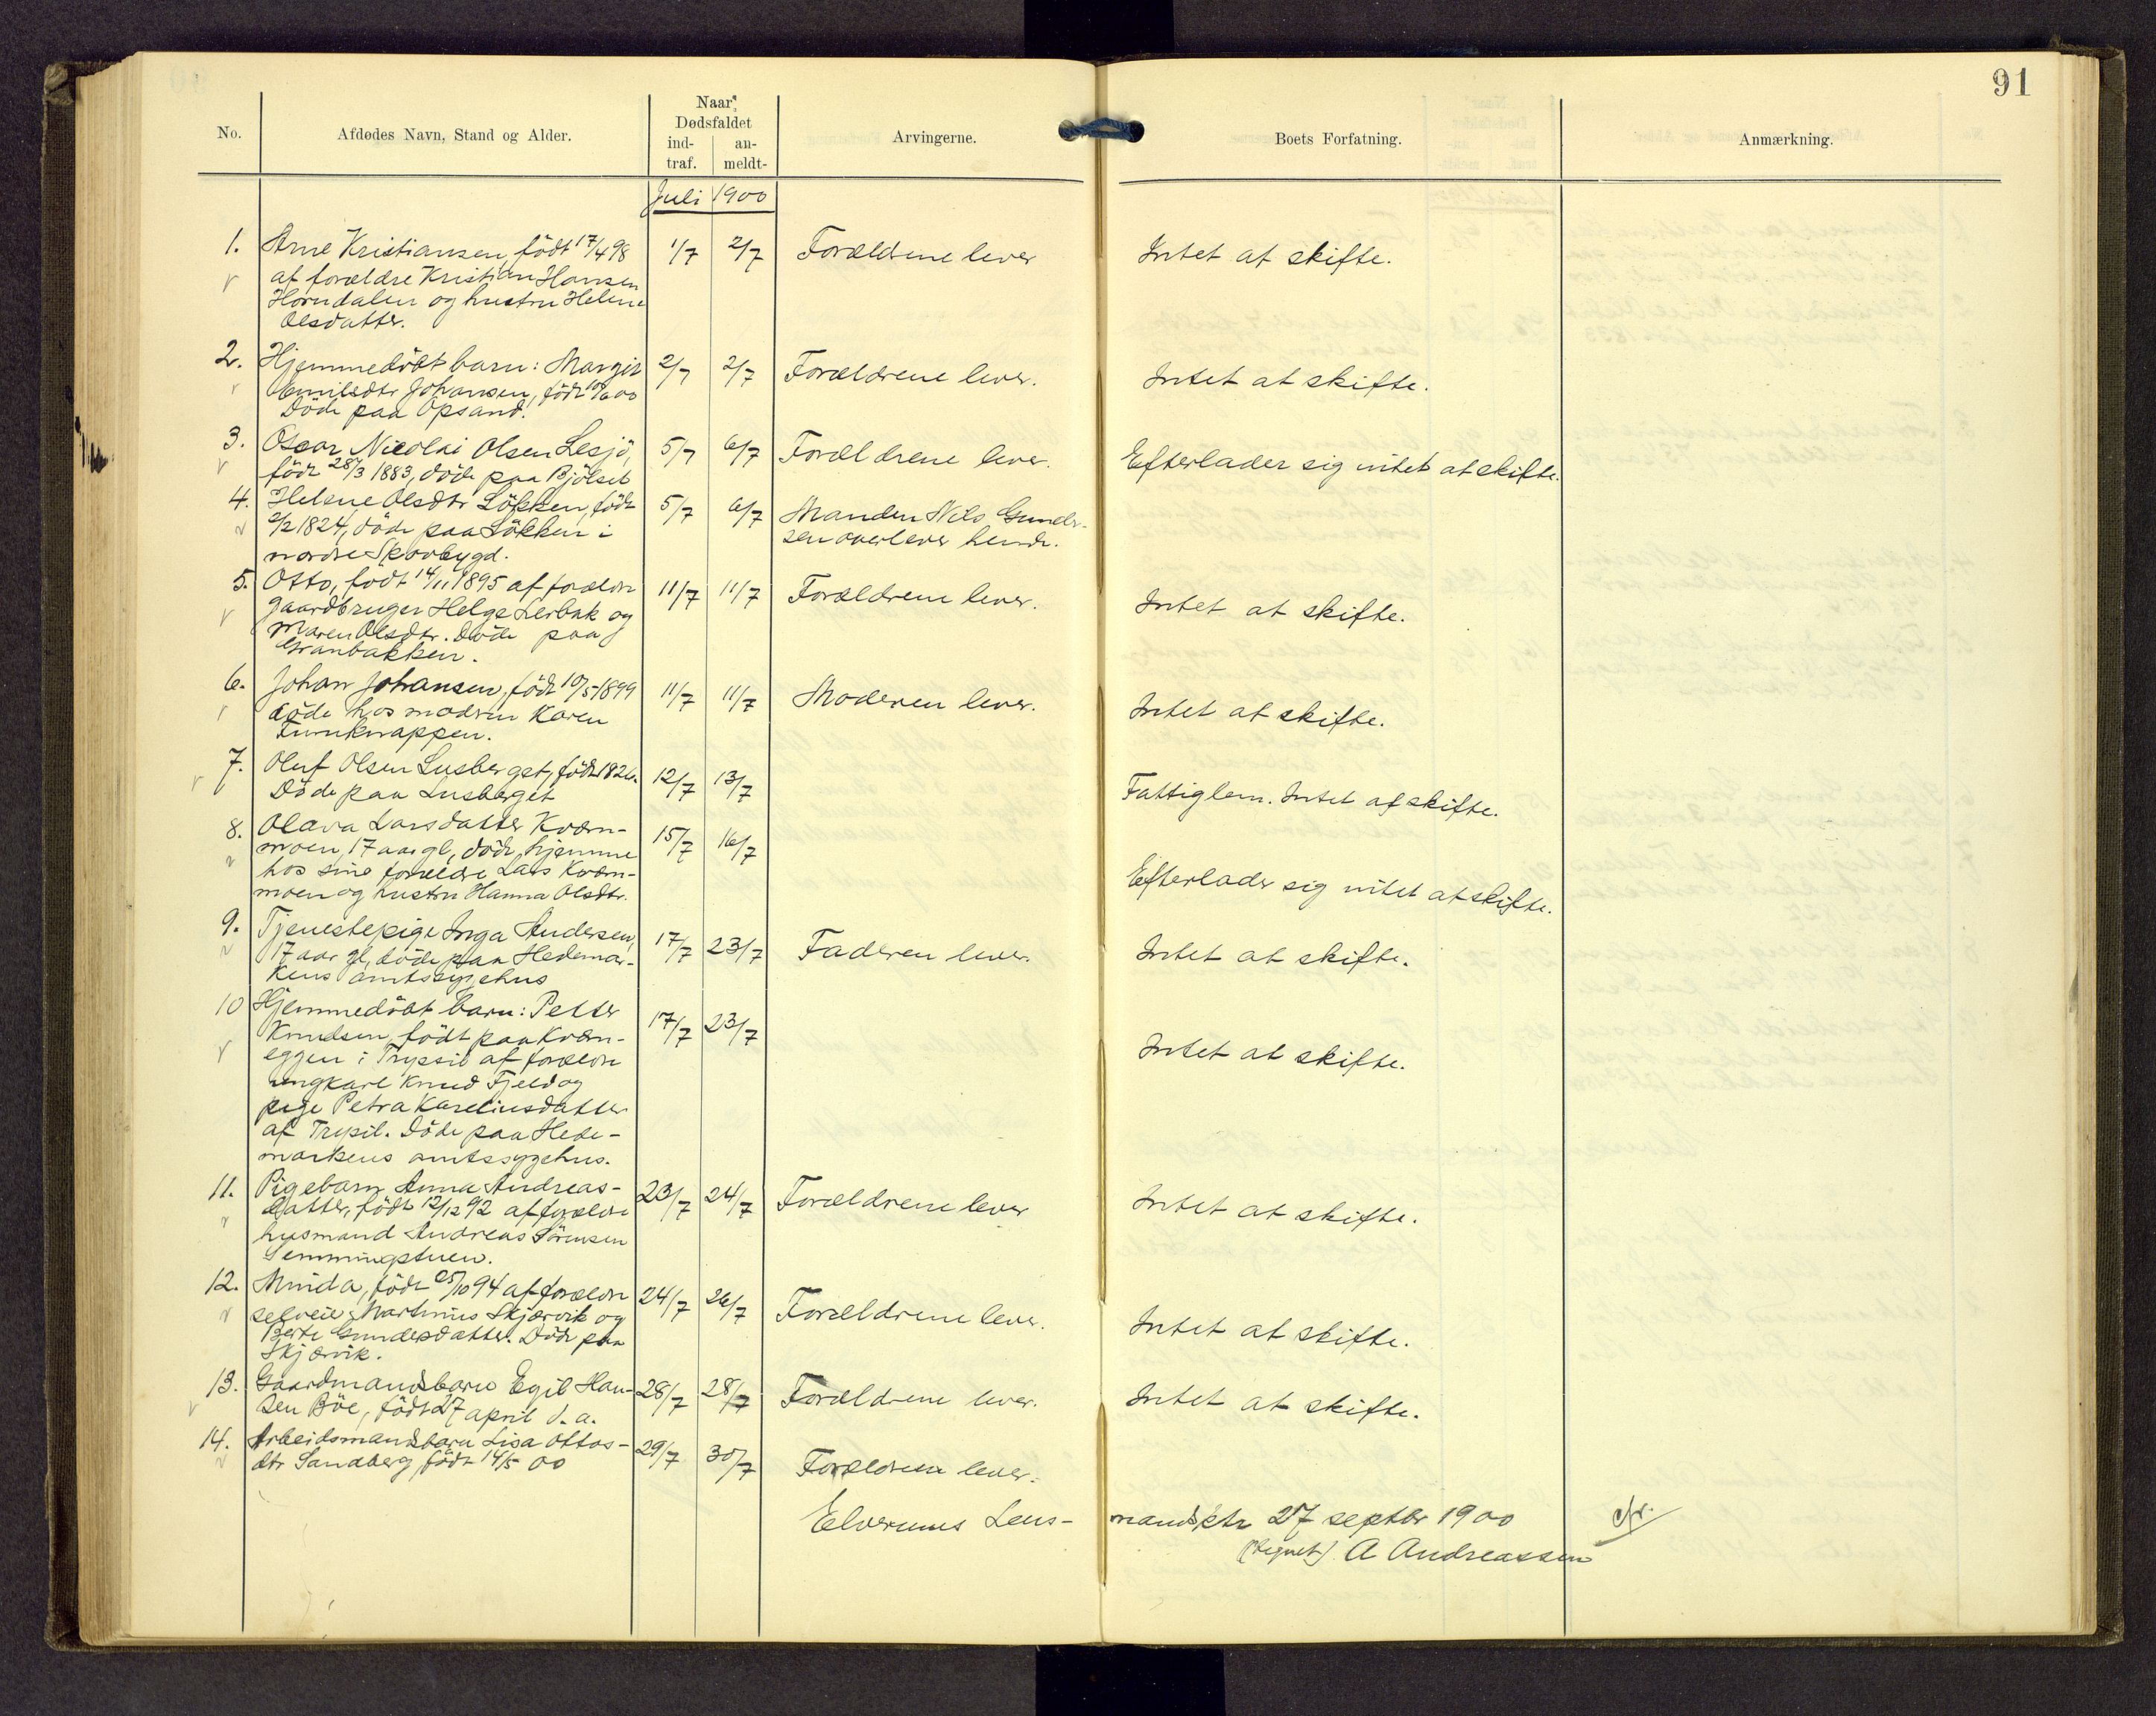 91
No.
Afdødes Navn, Stand og Alder.
Naar
Dødsfaldet
ind-
traf.
an-
meldt-
Arvingerne.
Boets Forfatning.
Anmærkning.
Juli 1900
1. Arne Kristiansen, födt 17/4 98 1/7 2/7 Forældrene lever Intet at skifte.
af forældre Kristian Hansen
Horndalen og hustru Helene
Olsdatter.
2. Hjemmedöbt barn: Margit 2/7 2/7 Forældrene lever. Intet at skifte.
Emilsdtr Johansen, födt 10/6 00
Döde paa Opsand.
3. Oscar Nicolai Olsen Lesjö, 5/7 6/7 Forældrene lever. Efterlader sig intet at skifte.
födt 28/3 1883, döde paa Bjölset
4. Helene Olsdtr Lökken, födt 5/7 6/7 Manden Nils Gunder-
2/2 1824, döde paa Lökken i sen overlever hende.
nordre Skovbygd.
5. Otto, födt 14/11 1895 af forældre 11/7 11/7 Forældrene lever. Intet at skifte.
gaardbruger Helge Lerbak og
Maren Olsdtr. Döde paa
Granbakken.
6. Johan Johansen, födt 10/5 1899 11/7 11/7 Moderen lever. Intet at skifte.
döde hos modren Karen
Furuknappen.
7. Oluf Olsen Lusberget, födt 1826. 12/7 13/7 Fattiglem. Intet at skifte.
Döde paa Lusberget
8. Olava Larsdatter Kværn- 15/7 16/7 Efterlader sig intet at skifte.
moen, 17 aar gl, döde hjemme
hos sine forældre Lars Kværn-
moen og hustru Hanna Olsdtr.
9. Tjenestepige Inga Andersen, 17/7 23/7 Faderen lever. Intet at skifte.
17 aar gl, döde paa Hedemar-
kens amtssygehus
10 Hjemmedöbt barn: Petter 17/7 23/7 Intet at skifte.
Knudsen, födt paa Kværn-
eggen i Trysil af forældre
ungkarl Knud Fjeld og
pige Petra Kareliusdatter
af Trysil. Döde paa Hede-
markens amtssygehus.
11. Pigebarn Anna Andreas- 23/7 24/7 Forældrene lever Intet at skifte.
datter, födt 12/12 92 af forældre
husmand Andreas Sörensen
Semmingstuen.
12. Minda, födt 25/10 94 af forældre 24/7 26/7 Forældrene lever. Intet at skifte.
selveier Martinus Skjærvik og
Berte Gundersdatter. Döde paa
Skjærvik.
13. Gaardmandsbarn Egil Han- 28/7 28/7 Forældrene lever. Intet at skifte.
sen Böe, födt 27 april d. a.
14. Arbeidsmandsbarn Lisa Ottos- 29/7 30/7 Forældrene lever.
dtr Sandberg, födt 14/5 00
Elverums Lens- mandsktr 27 septbr 1900
(tegnet) A Andreassen